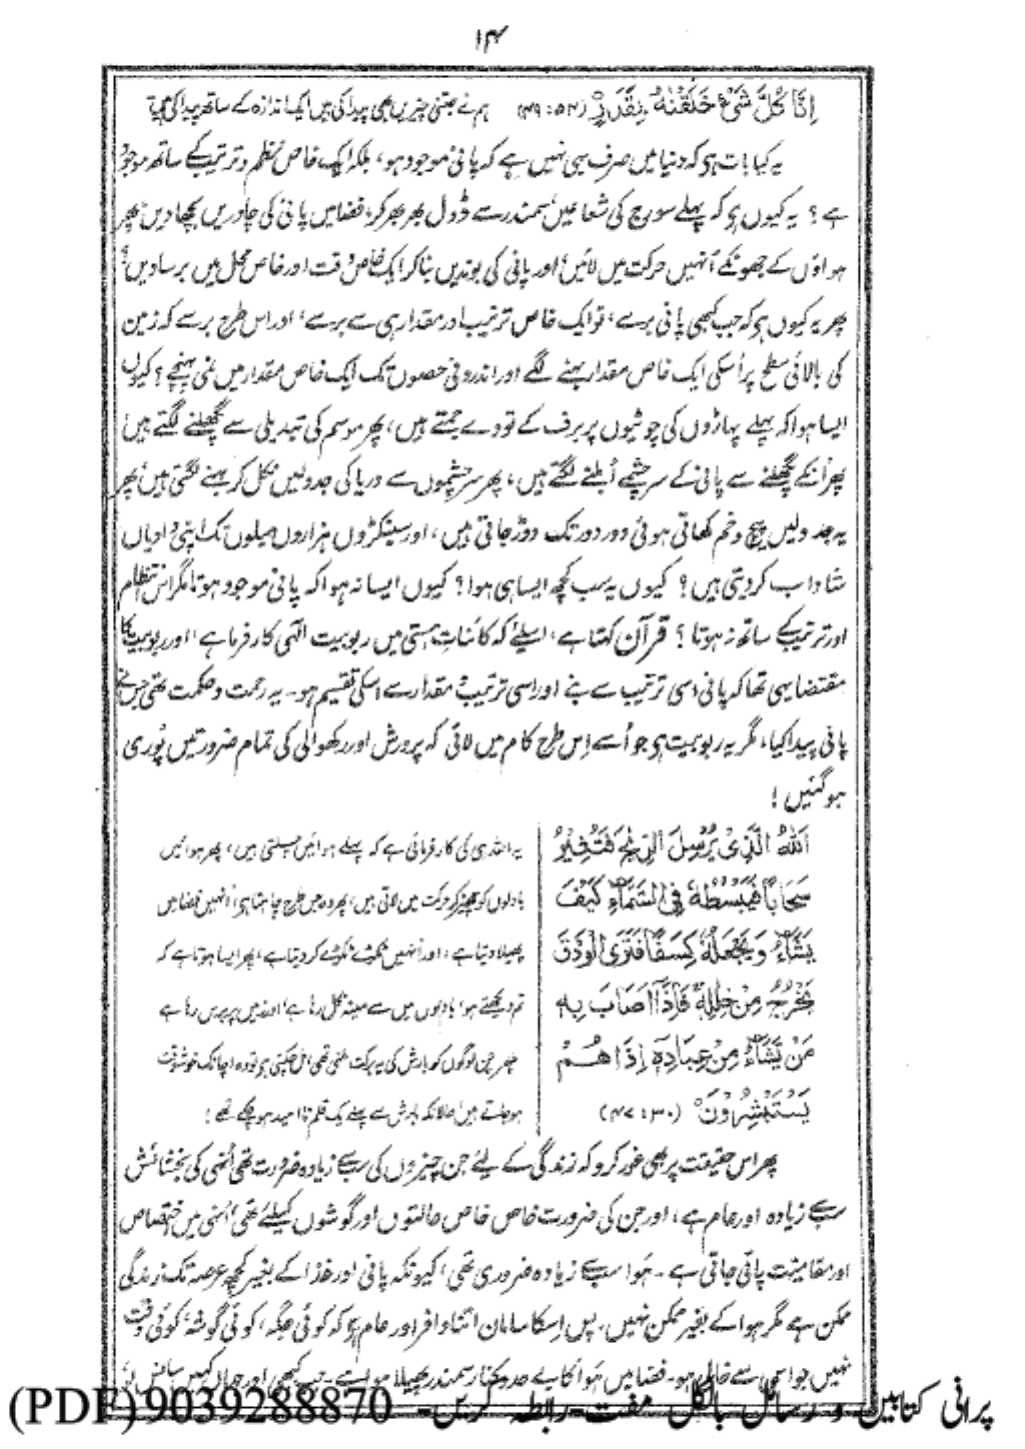 ۱۴
اِنَّا كُلَّ شَیْءٍ خَلَقْنٰهُ بِقَدَرٍ (۵۴:۴۹) ہم نے جتنی چیزیں بھی پیدا کی ہیں ایک اندازہ کے ساتھ پیدا کی ہیں
یہ کیا بات ہو کہ دنیا میں صرف یہی نہیں ہے کہ پانی موجود ہو، بلکہ ایک خاص نظم و ترتیب کے ساتھ موجود
ہے؟ یہ کیوں ہو کہ پہلے سورج کی شعاعیں سمندر سے ڈول بھر بھر کر، فضا میں پانی کی چادریں بچھا دیں، پھر
ہواؤں کے جھونکے اُنہیں حرکت میں لائیں اور پانی کی بوندیں بنا کر ایک خاص وقت اور خاص محل میں برسا دیں؟
پھر یہ کیوں ہو کہ جب کبھی پانی برسے، تو ایک خاص ترتیب اور مقدار ہی سے برسے، اور اس طرح برسے کہ زمین
کی بالائی سطح پر اُسکی ایک خاص مقدار بہنے لگے اور اندرونی حصوں تک ایک خاص مقدار میں نمی پہنچے؟ کیوں
ایسا ہوا کہ پہلے پہاڑوں کی چوٹیوں پر برف کے تودے جمتے ہیں، پھر موسم کی تبدیلی سے پگھلنے لگتے ہیں،
پھر اُنکے پگھلنے سے پانی کے سرچشمے اُبلنے لگتے ہیں، پھر سرچشموں سے دریا کی جدولیں نکل کر بہنے لگتی ہیں، پھر
یہ جدولیں پیچ و خم کھاتی ہوئی دور دور تک دوڑ جاتی ہیں، اور سینکڑوں ہزاروں میلوں تک اپنی وادیاں
شاداب کر دیتی ہیں؟ کیوں یہ سب کچھ ایسا ہی ہوا؟ کیوں ایسا نہ ہوا کہ پانی موجود ہوتا مگر اس انتظام
اور ترتیب کے ساتھ نہ ہوتا؟ قرآن کہتا ہے، اسلئے کہ کائنات ہستی میں ربوبیت الٰہی کارفرما ہے، اور ربوبیت کا
مقتضا یہی تھا کہ پانی اسی ترتیب سے بنے اور اسی ترتیب و مقدار سے اُسکی تقسیم ہو۔ یہ رحمت و حکمت تھی جس نے
پانی پیدا کیا، مگر یہ ربوبیت ہو جو اُسے اِس طرح کام میں لائی کہ پرورش اور رکھوالی کی تمام ضرورتیں پُوری
ہو گئیں!
اَللّٰهُ الَّذِیْ یُرْسِلُ الرِّیٰحَ فَتُثِیْرُ
سَحَابًا فَیَبْسُطُهٗ فِی السَّمَآءِ كَیْفَ
یَشَآءُ وَیَجْعَلُهٗ كِسَفًا فَتَرَی الْوَدْقَ
یَخْرُجُ مِنْ خِلٰلِهٖ فَاِذَآ اَصَابَ بِهٖ
مَنْ یَّشَآءُ مِنْ عِبَادِهٖۤ اِذَا هُمْ
یَسْتَبْشِرُوْنَ (۳۰:۴۷)
یہ اللہ ہی کی کارفرمائی ہے کہ پہلے ہوائیں چلتی ہیں، پھر ہوائیں
بادلوں کو چھیڑ کر حرکت میں لاتی ہیں، پھر وہ جس طرح چاہتا ہو، اُنہیں فضا میں
پھیلا دیتا ہے، اور اُنہیں ٹکڑے ٹکڑے کر دیتا ہے، پھر ایسا ہوتا ہے کہ
تم دیکھتے ہو، بادلوں میں سے مینہ نکل رہا ہے،
پھر جن لوگوں کو بارش کی یہ برکت ملنی تھی، مل چکتی ہو تو وہ اچانک خوش وقت
ہو جاتے ہیں، حالانکہ بارش سے پہلے یک قلم نا امید ہو چکے تھے!
پھر اس حقیقت پر بھی غور کرو کہ زندگی کے لئے جن چیزوں کی سب سے زیادہ ضرورت تھی اُنہی کی بخشائش
سب سے زیادہ اور عام ہے، اور جن کی ضرورت خاص خاص حالتوں اور گوشوں کیلئے تھی، اُنہی میں اختصاص
اور مقامیت پائی جاتی ہے۔ ہوا سب سے زیادہ ضروری تھی، کیونکہ پانی اور غذا کے بغیر کچھ عرصہ تک زندگی
ممکن ہے مگر ہوا کے بغیر ممکن نہیں۔ پس اِسکا سامان اتنا وافر اور عام ہو کہ کوئی جگہ، کوئی گوشہ، کوئی وقت
نہیں جو اس سے خالی ہو۔ فضا میں ہوا کا بے حد و کنار سمندر پھیلا ہوا ہے۔
پرانی کتابیں و رسائل بالکل مفت۔رابطہ کریں۔ 9039288870(PDF)